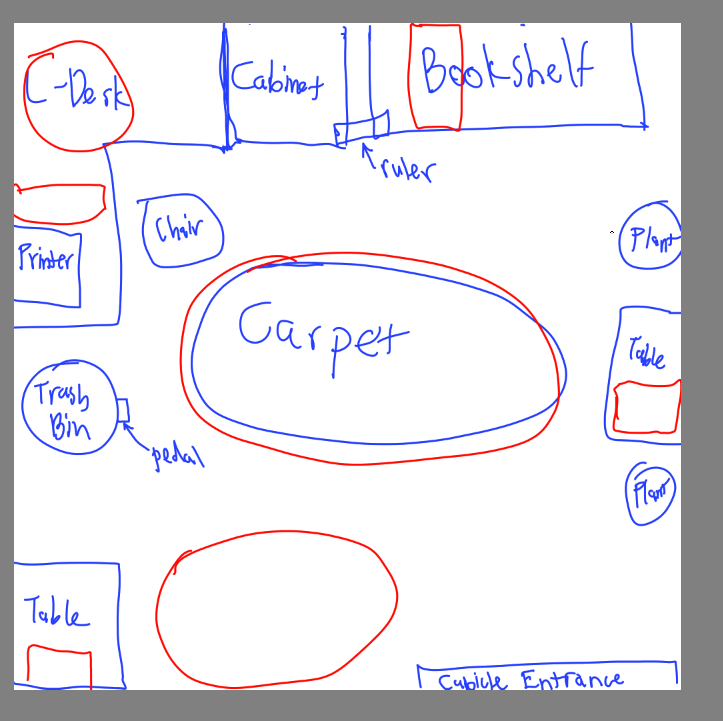 C-Desk
Cabinet
Bookshelf
ruler
Chair
Plant
Printer
Carpet
Table
Trash
Bin
pedal
Plant
Table
Cubicle Entrance